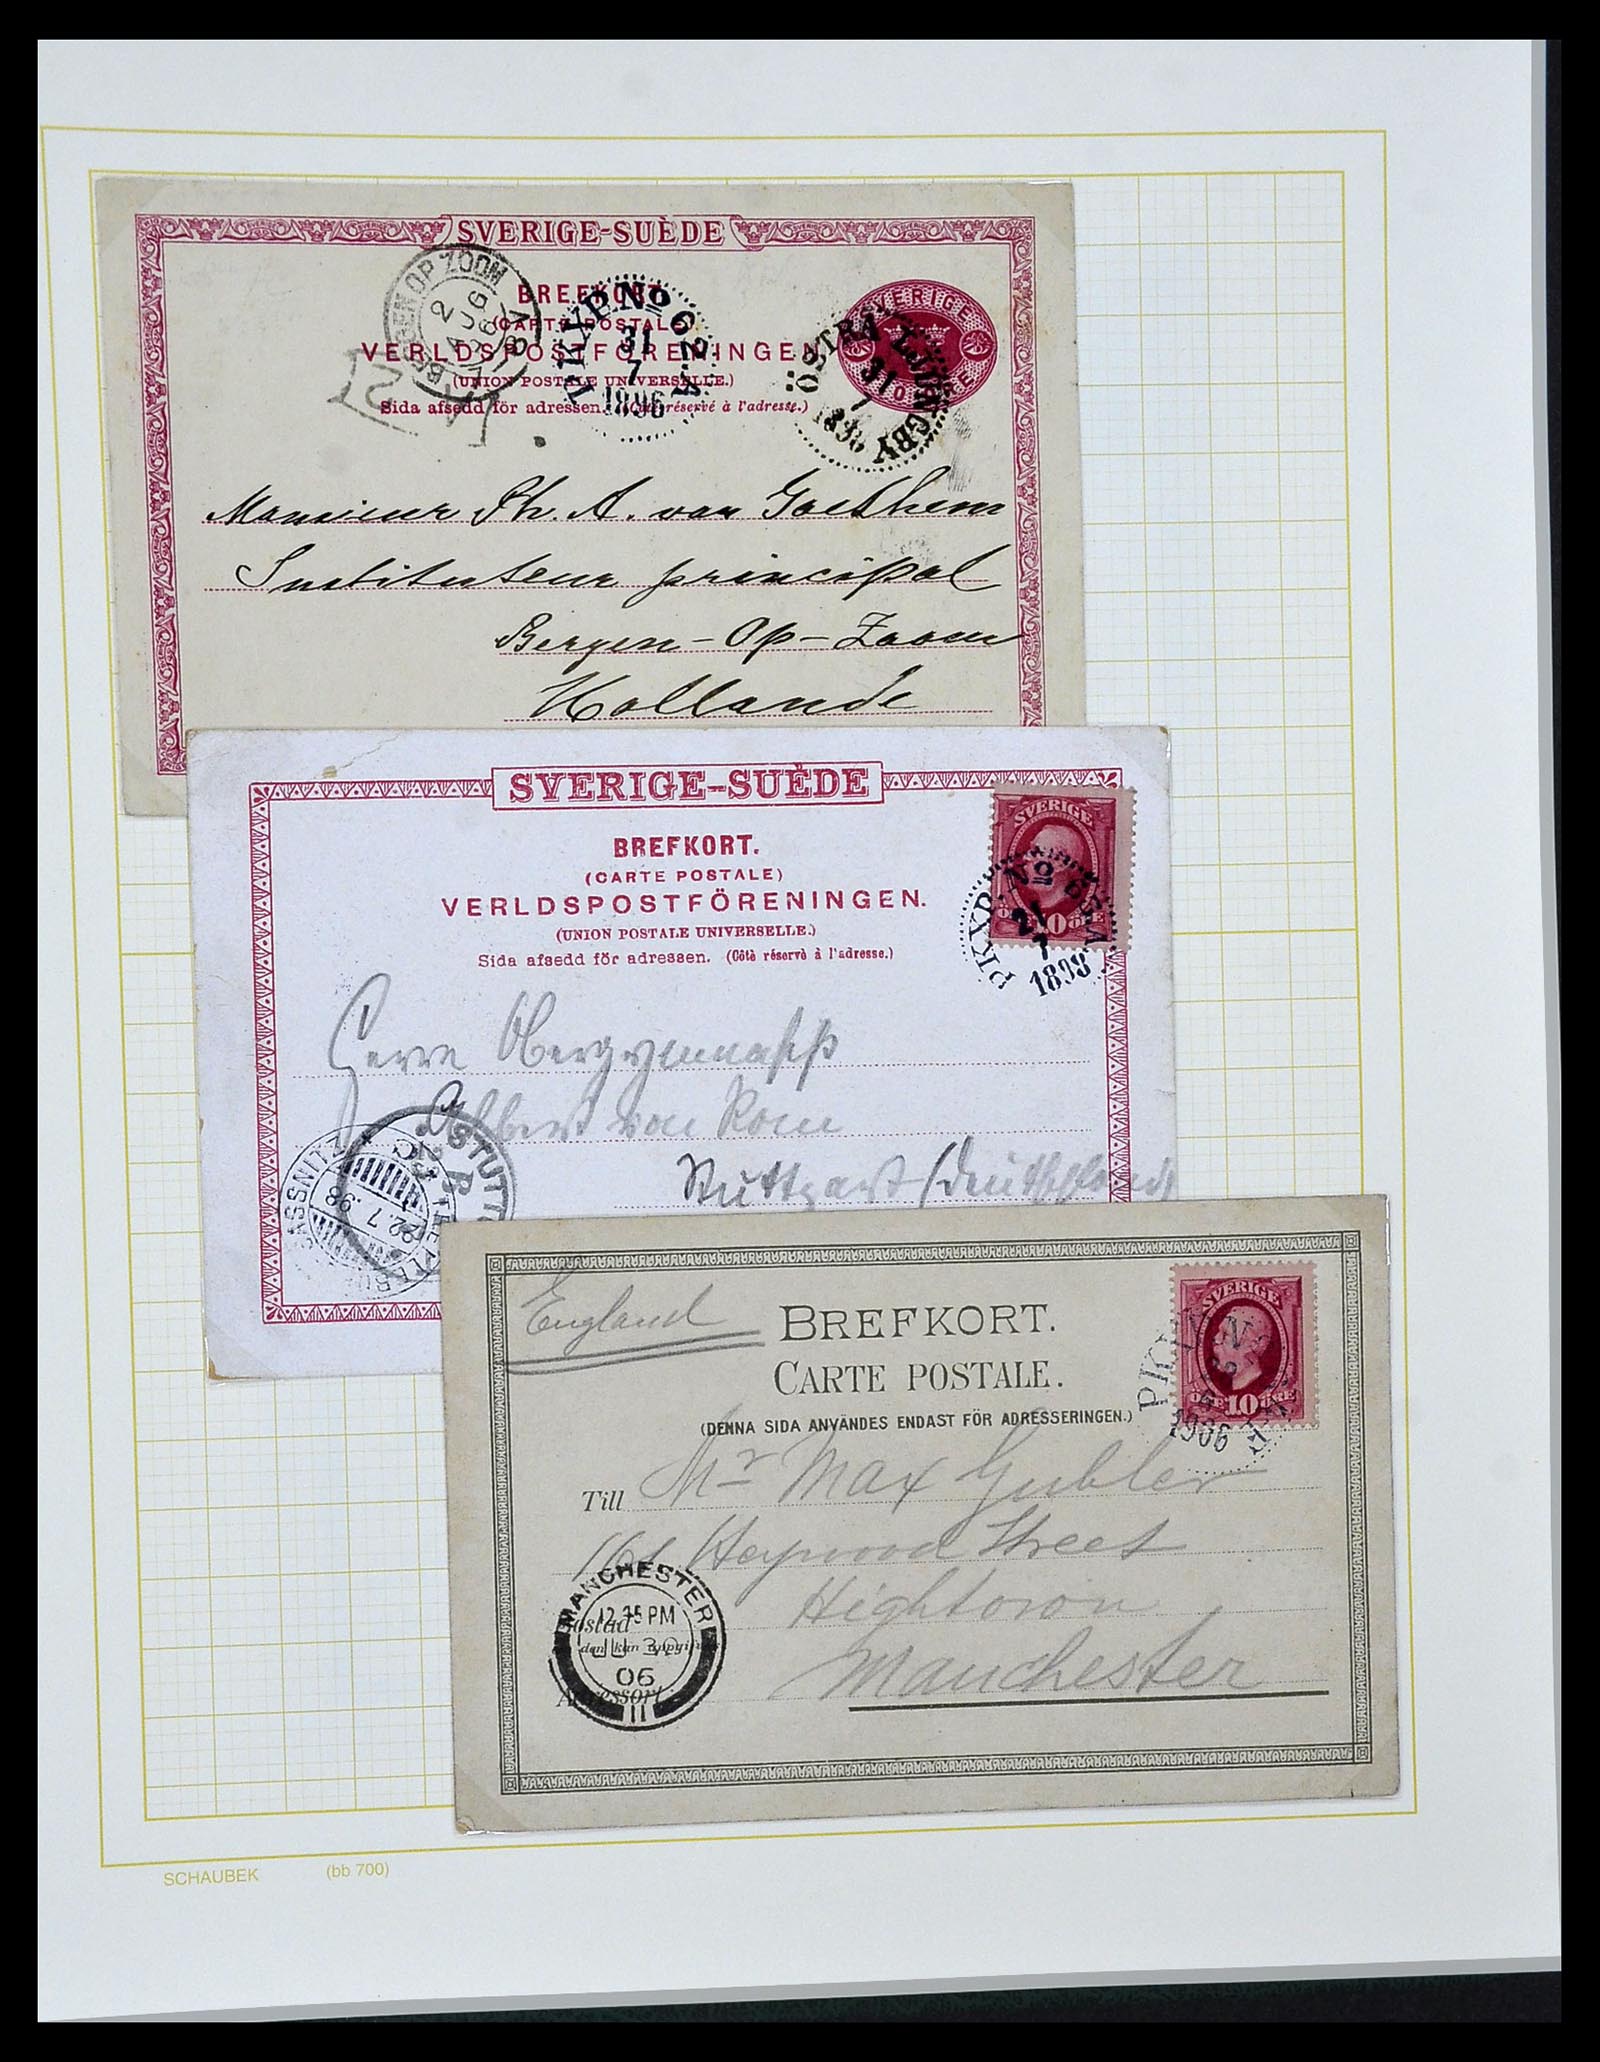 SVERIGE-SUÈDE
BREFKORT.
(CARTE POSTALE)
VERLDSPOSTFÖRENINGEN
(UNION POSTALE UNIVERSELLE.)
Sida afsedd för adressen. (Côté réservé à l'adresse.)
BERGEN OP ZOOM
2
AUG
96
PKXP. No
31
7
1896
ÖSTRA LJUNGBY
31
7
1896
SVERIGE
Monsieur Ph. A. van Goethem
Instituteur principal
Bergen-Op-Zoom
Hollande
SVERIGE-SUÈDE
BREFKORT.
(CARTE POSTALE)
VERLDSPOSTFÖRENINGEN.
(UNION POSTALE UNIVERSELLE.)
Sida afsedd för adressen. (Côtè réservè à l'adresse.)
SVERIGE
10 ÖRE
PKXP. No
21
7
1898
Herrn
Albert von
Stuttgart (Deutschland
SASSNITZ
22.7.98
STUTTG
BREFKORT.
CARTE POSTALE.
(DENNA SIDA ANVÄNDES ENDAST FÖR ADRESSERINGEN.)
England
SVERIGE
ÖRE 10 ÖRE
PKXP. N
1906
Till Mr Max Gubler
161 Heywood Street
Hightown
Manchester
Bostad
den kan uppgifvas
Adressort
MANCHESTER
12.15 PM
JU 30
06
11
SCHAUBEK (bb 700)